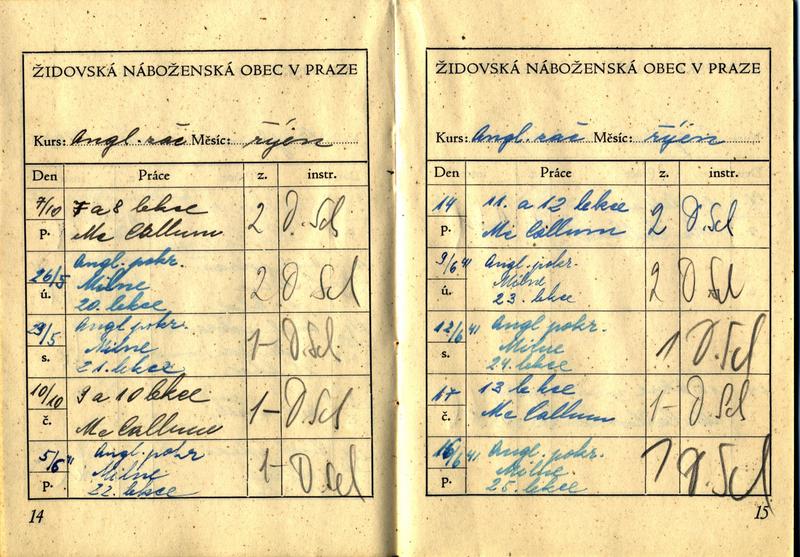 ŽIDOVSKÁ NÁBOŽENSKÁ OBEC V PRAZE
Kurs: Angl. zač Měsíc: říjen
Den Práce z. instr.
7/10 7 a 8 lekce 2 D. Scl
P. Mc Callum
26/5 Angl. pokr. 2 D. Scl
ú. Milne
20. lekce
29/5 Angl pokr. 1- D. Scl
s. Milne
21. lekce
10/10 9 a 10 lekce 1- D. Scl
č. Mc Callum
5/6 41 Angl. pokr 1- D. Scl
P. Milne
22. lekce
14
ŽIDOVSKÁ NÁBOŽENSKÁ OBEC V PRAZE
Kurs: Angl. zač Měsíc: říjen
Den Práce z. instr.
14 11. a 12 lekce 2 D. Scl
P. Mc Callum
9/6 41 Angl. pokr. 2 D. Scl
ú. Milne
23. lekce
12/6 41 Angl pokr. 1 D. Scl
s. Milne
24. lekce
17 13 lekce 1- D. Scl
č. Mc Callum
16/6 41 Angl. pokr. 1 D. Scl
P. Milne.
25. lekce
15